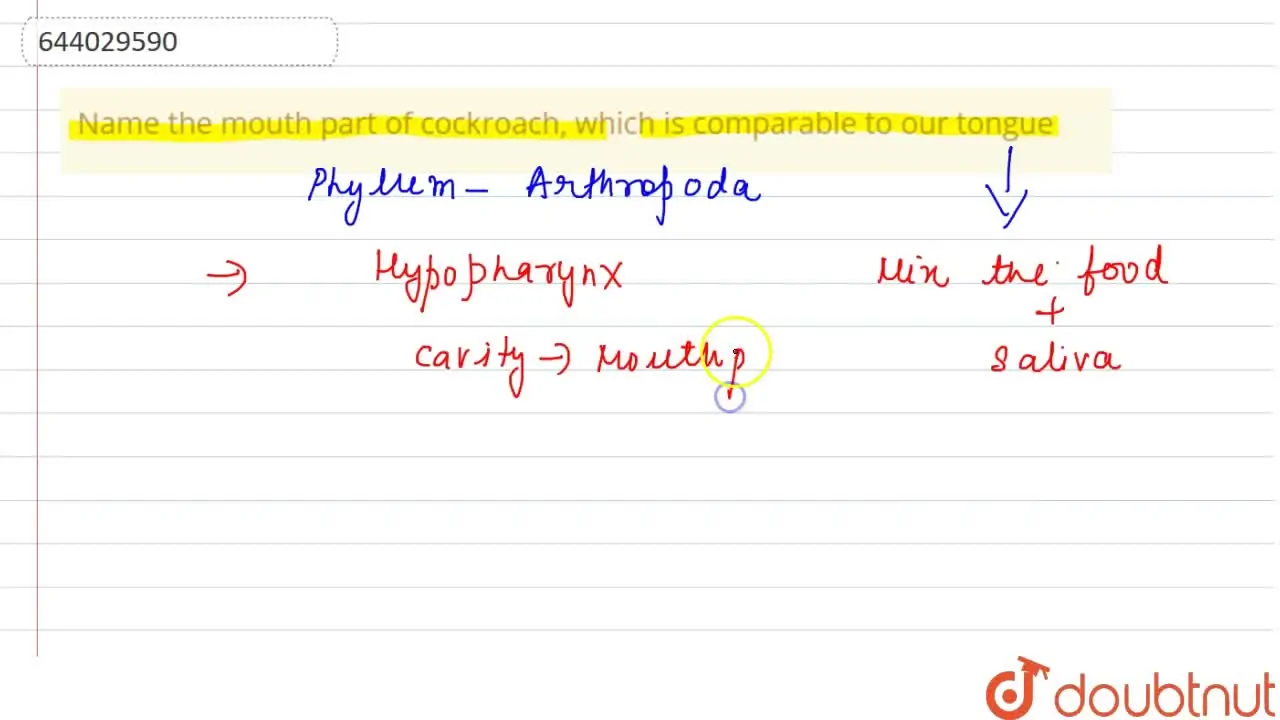 644029590
Name the mouth part of cockroach, which is comparable to our tongue
Phyllem - Arthropoda
→ Hypopharynx Mix the food
+
Cavity → Mouth p Saliva
doubtnut